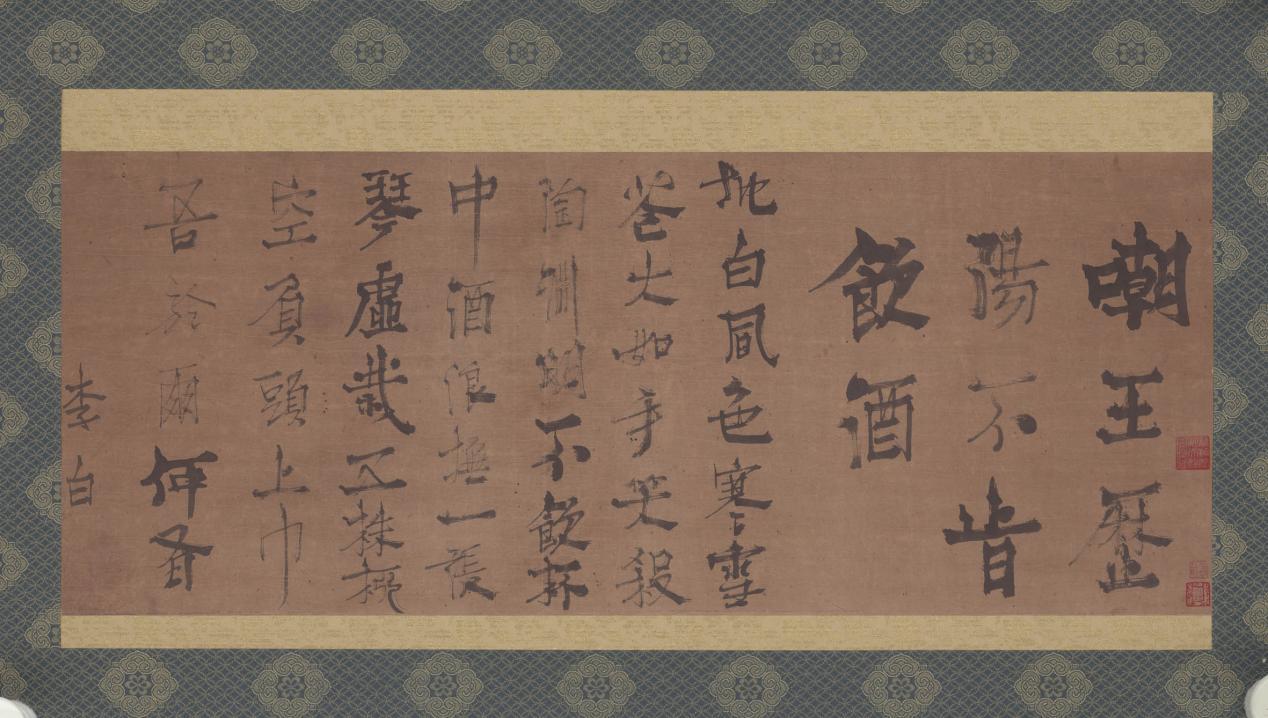 嘲王歷
陽不肯
飲酒
地白風色寒雪
花大如手笑殺
陶淵明不飲杯
中酒浪撫一張
琴虛栽五株柳
空負頭上巾
吾於爾何有
李白